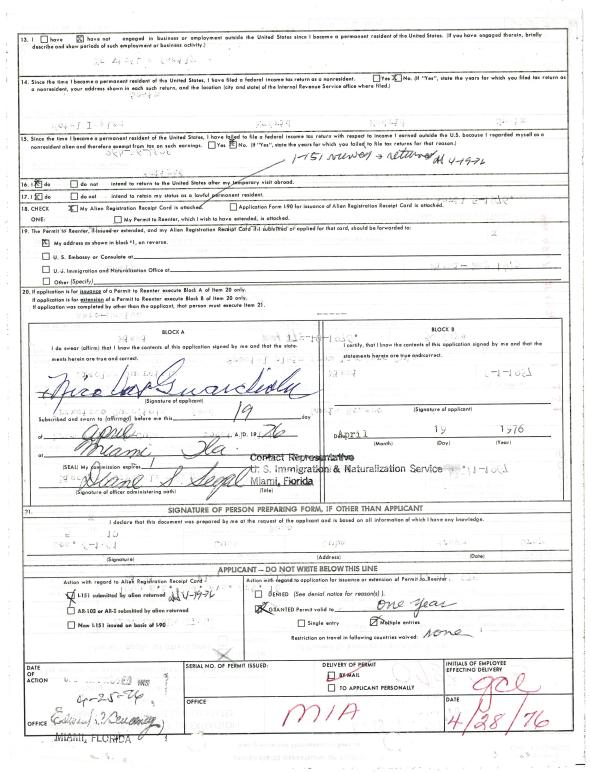 13. I ☐ have ☒ have not engaged in business or employment outside the United States since I became a permanent resident of the United States. (If you have engaged therein, briefly
describe and show periods of such employment or business activity.)
14. Since the time I became a permanent resident of the United States, I have filed a federal income tax return as a nonresident. ☐ Yes ☒ No. (If "Yes", state the years for which you filed tax return as
a nonresident, your address shown in each such return, and the location (city and state) of the Internal Revenue Service office where filed.)
15. Since the time I became a permanent resident of the United States, I have failed to file a federal income tax return with respect to income I earned outside the U.S. because I regarded myself as a
nonresident alien and therefore exempt from tax on such earnings. ☐ Yes ☒ No. (If "Yes", state the years for which you failed to file tax returns for that reason.)
I-151 viewed & returned 4-19-76
16. I ☒ do ☐ do not intend to return to the United States after my temporary visit abroad.
17. I ☒ do ☐ do not intend to retain my status as a lawful permanent resident.
18. CHECK ☒ My Alien Registration Receipt Card is attached. ☐ Application Form I-90 for issuance of Alien Registration Receipt Card is attached.
ONE: ☐ My Permit to Reenter, which I wish to have extended, is attached.
19. The Permit to Reenter, if issued or extended, and my Alien Registration Receipt Card if submitted or applied for that card, should be forwarded to:
☒ My address as shown in block #1, on reverse.
☐ U. S. Embassy or Consulate at
☐ U. S. Immigration and Naturalization Office at
☐ Other (Specify)
20. If application is for issuance of a Permit to Reenter execute Block A of Item 20 only.
If application is for extension of a Permit to Reenter execute Block B of Item 20 only.
If application was completed by other than the applicant, that person must execute Item 21.
BLOCK A
I do swear (affirm) that I know the contents of this application signed by me and that the state-
ments herein are true and correct.
Nicolas Guardiola
(Signature of applicant)
Subscribed and sworn to (affirmed) before me this 19 day
of April, A.D. 19 76
at Miami Fla.
(SEAL) My commission expires
Diane S. Segal
(Signature of officer administering oath) (Title)
Contact Representative
U. S. Immigration & Naturalization Service
Miami, Florida
BLOCK B
I certify, that I know the contents of this application signed by me and that the
statements herein are true and correct.
(Signature of applicant)
April 19 1976
(Month) (Day) (Year)
21. SIGNATURE OF PERSON PREPARING FORM, IF OTHER THAN APPLICANT
I declare that this document was prepared by me at the request of the applicant and is based on all information of which I have any knowledge.
(Signature) (Address) (Date)
APPLICANT – DO NOT WRITE BELOW THIS LINE
Action with regard to Alien Registration Receipt Card
☒ I-151 submitted by alien returned 4-19-76
☐ AR-103 or AR-3 submitted by alien returned
☐ New I-151 issued on basis of I-90
Action with regard to application for issuance or extension of Permit to Reenter:
☐ DENIED (See denial notice for reason(s).)
☒ GRANTED Permit valid to one year
☐ Single entry ☒ Multiple entries
Restriction on travel in following countries waived: none
DATE
OF
ACTION
4-25-76
OFFICE
MIAMI, FLORIDA
SERIAL NO. OF PERMIT ISSUED:
OFFICE
MIA
DELIVERY OF PERMIT
☐ BY MAIL
☐ TO APPLICANT PERSONALLY
INITIALS OF EMPLOYEE
EFFECTING DELIVERY
gcl
DATE
4/28/76